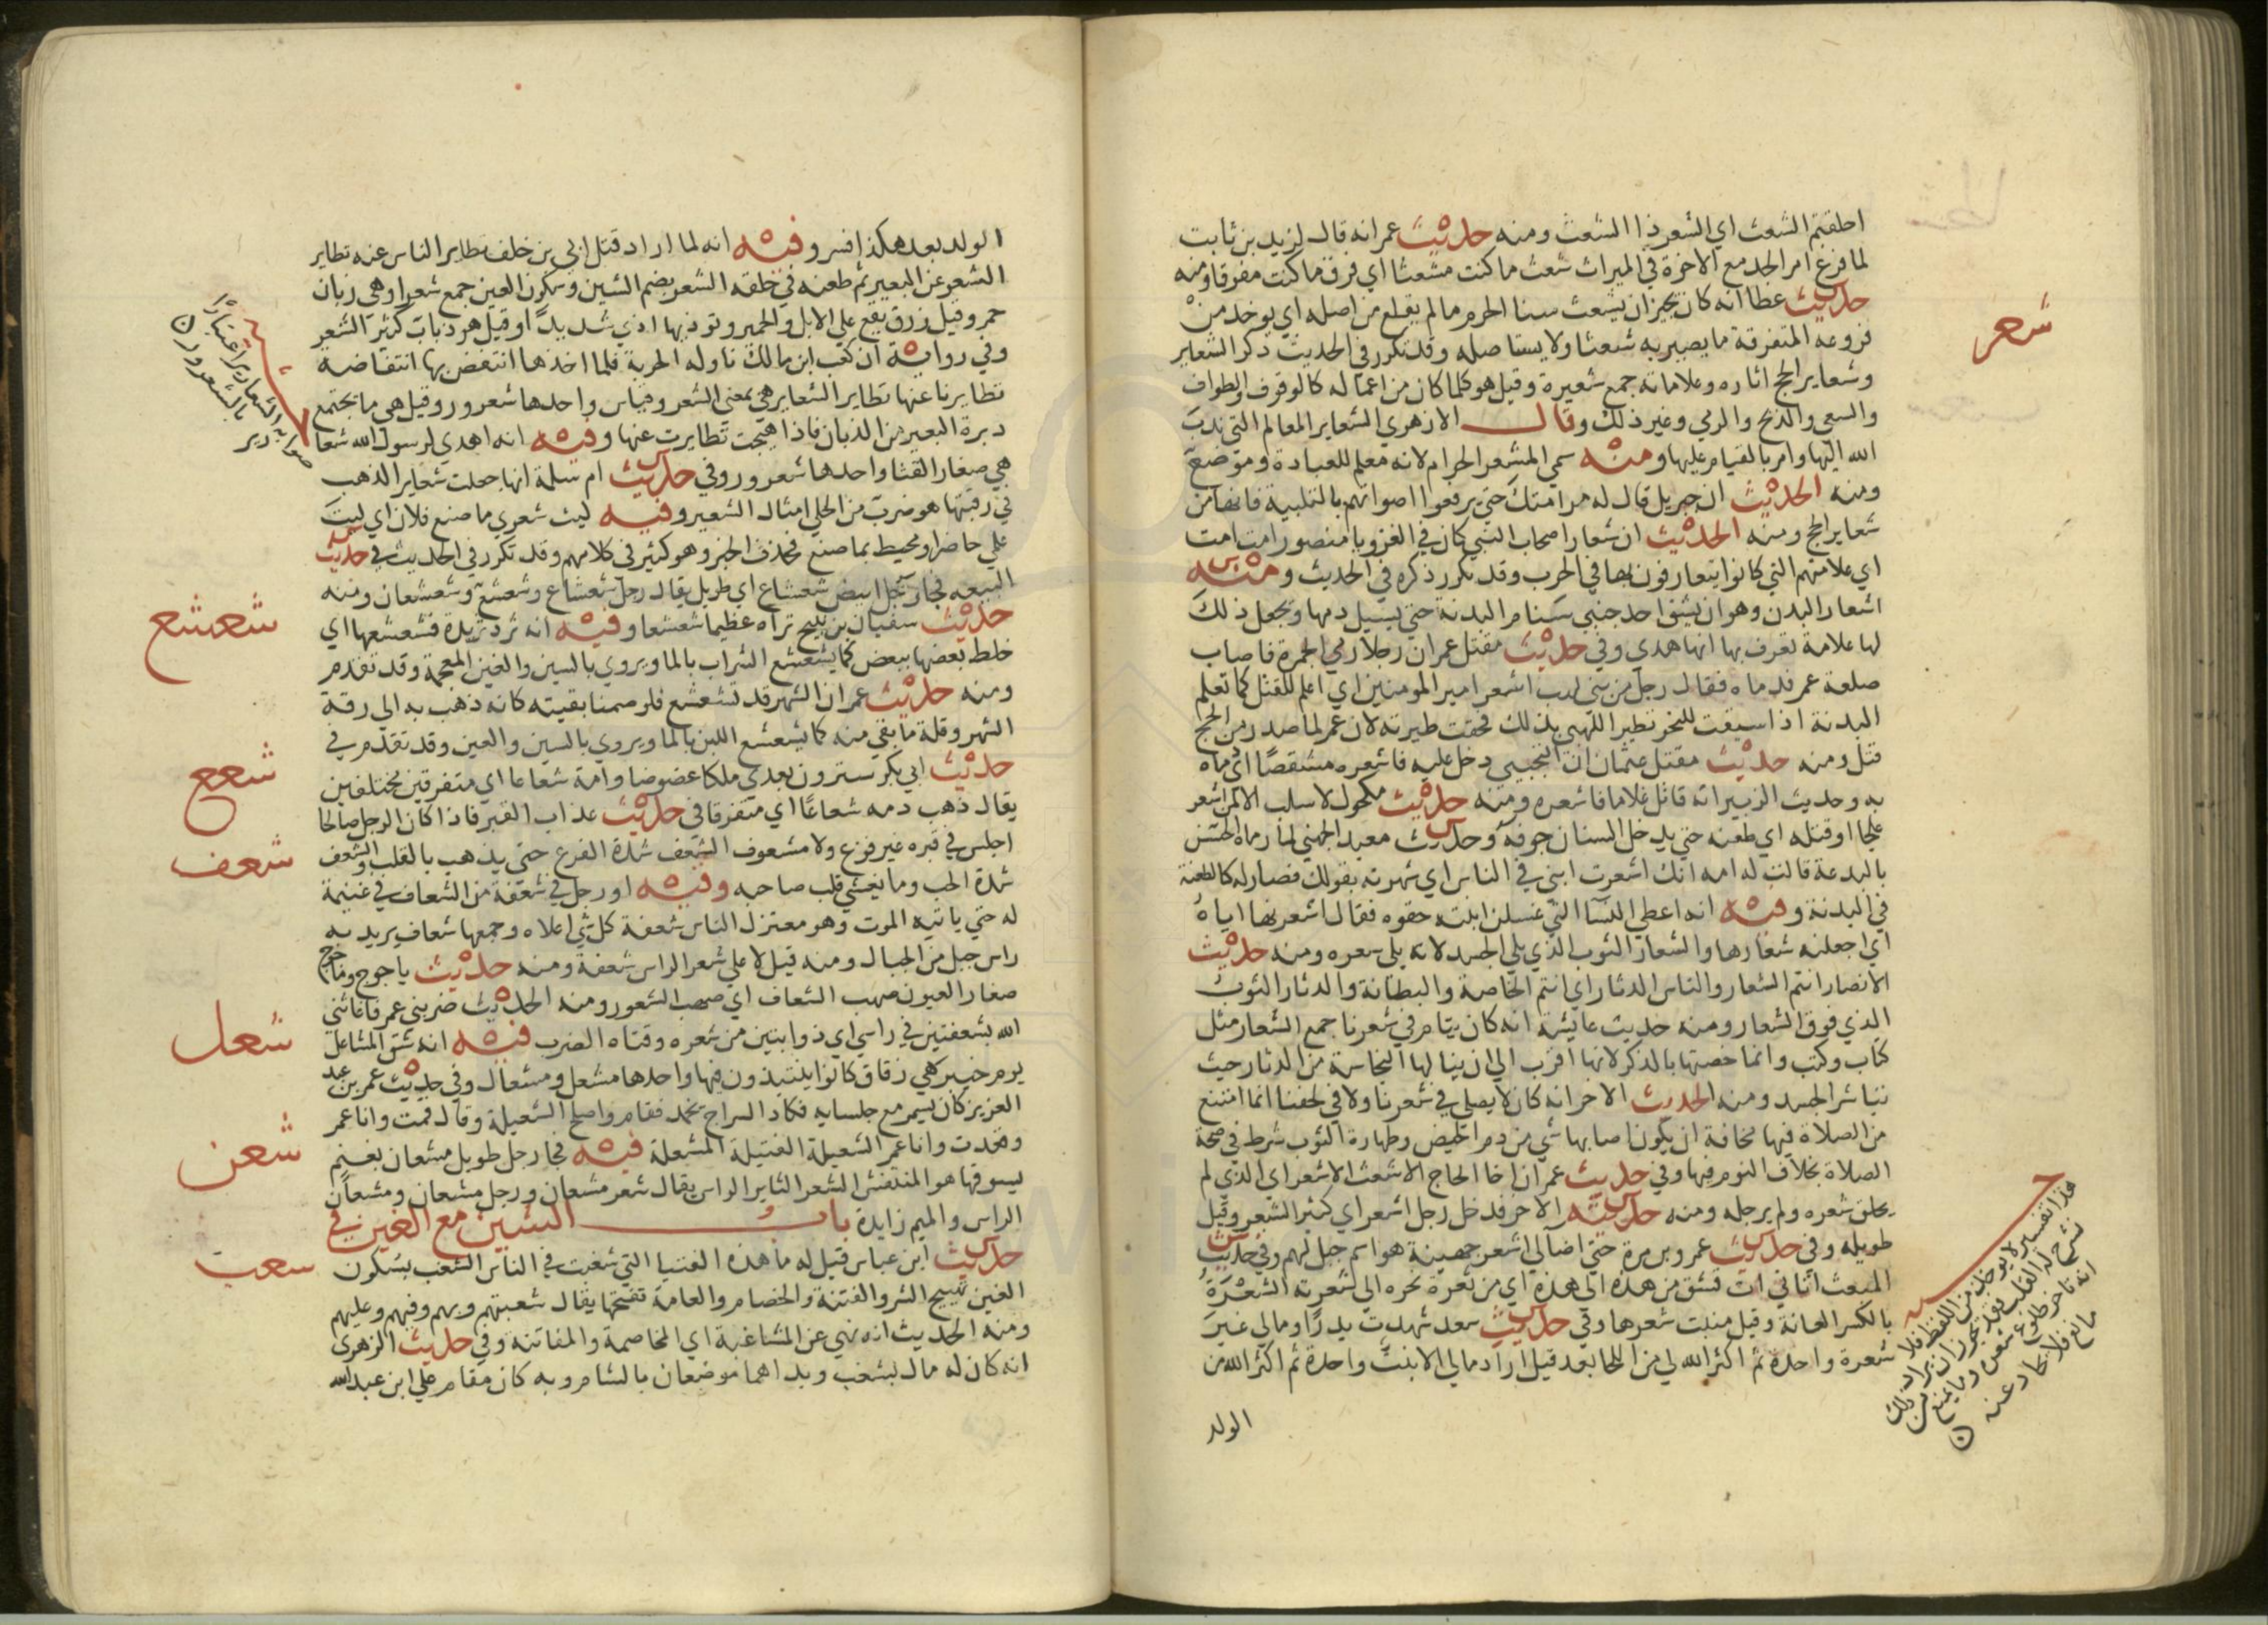 احلقتم الشعث اي الشعر ذا الشعث ومنه حديث عمر انه قال لزيد بن ثابت
لما فرغ امر الجد مع الاخوة في الميراث شعث ما كنت مشعثا اي فرق ما كنت مفرقا ومنه
حديث عطا انه كان يجيز ان يشعث سنا الحرم ما لم يقلع من اصله اي يوخد من
فروعه المتفرقة ما يصير به شعثا ولا يستاصله وقد تكرر في الحديث ذكر الشعاير
شعر
وشعاير الحج اثاره وعلاماته جمع شعيرة وقيل هو كلما كان من اعماله كالوقوف والطواف
والسعي والذبح والرمي وغير ذلك وقال الازهري الشعاير المعالم التي ندب
الله اليها وامر بالقيام عليها ومنه سمي المشعر الحرام لانه معلم للعبادة وموضع
ومنه الحديث ان جبريل قال له مر امتك حتي يرفعوا اصواتهم بالتلبية فانها من
شعاير الحج ومنه الحديث ان شعار اصحاب النبي كان في الغزو يا منصور امت امت
اي علامتهم التي كانوا يتعارفون بها في الحرب وقد تكرر ذكره في الحديث ومنه
اشعار البدن وهو ان يشق احد جنبي سنام البدنة حتي يسيل دمها ويجعل ذلك
لها علامة تعرف بها انها هدي وفي حديث مقتل عمر ان رجلا رمي الجمرة فاصاب
صلعة عمر فدماه فقال رجل من بني لهب اشعر امير المومنين اي اعلم للقتل كما تعلم
البدنة اذا سيقت للنحر تطير اللهبي بذلك فحقت طيرته لان عمر لما صدر من الحج
قتل ومنه حديث مقتل عثمان ان التجيبي دخل عليه فاشعره مشقصا اي دماه
به وحديث الزبير انه قاتل غلاما فاشعره ومنه حديث مكحول لا سلب الا لمن اشعر
علجا او قتله اي طعنه حتي يدخل السنان جوفه وحديث معبد الجهني لما رماه الحسن
بالبدعة قالت له امه انك اشعرت ابني في الناس اي شهرته بقولك فصار له كالطعنة
في البدنة وفيه انه اعطي النسا اللتي غسلن ابنته حقوه فقال اشعرنها اياه
اي اجعلنه شعارها والشعار الثوب الذي يلي الجسد لانه يلي شعره ومنه حديث
الانصار انتم الشعار والناس الدثار اي انتم الخاصة والبطانة والدثار الثوب
الذي فوق الشعار ومنه حديث عايشة انه كان ينام في شعرنا جمع الشعار مثل
كتاب وكتب وانما خصتها بالذكر لانها اقرب الي ان ينالها النجاسة من الدثار حيث
تباشر الجسد ومنه الحديث الاخر انه كان لا يصلي في شعرنا ولا في لحفنا انما امتنع
من الصلاة فيها مخافة ان يكون اصابها شي من دم الحيض وطهارة الثوب شرط في صحة
الصلاة بخلاف النوم فيها وفي حديث عمر ان اخا الحاج الاشعث الاشعر اي الذي لم
يحلق شعره ولم يرجله ومنه حديثه الاخر فدخل رجل اشعر اي كثير الشعر وقيل
طويله وفي حديث عمرو بن مرة حتي اضا لي اشعر جهينة هو اسم جبل لهم وفي حديث
المبعث اتاني ات فشق من هذه الي هذه اي من ثغرة نحره الي شعرته الشعرة
بالكسر العانة وقيل منبت شعرها وفي حديث سعد شهدت بدرا ومالي غير
شعرة واحدة ثم اكثر الله لي من اللحا بعد قيل اراد مالي الا بنت واحدة ثم اكثر الله من
الولد
هذا تفسير لا يوخذ من اللفظ فلا
ينشرح له القلب
مانع فلا يحاد عنه
الولد بعد هكذا فسر وفيه انه لما اراد قتل ابي بن خلف تطاير الناس عنه تطاير
الشعر عن البعير ثم طعنه في حلقه الشعر بضم الشين وسكون العين جمع شعرا وهي ذبان
حمر وقيل زرق يقع علي الابل والحمير وتوذيها اذي شديدا وقيل هو ذباب كثير الشعر
وفي رواية ان كعب ابن مالك ناوله الحربة فلما اخذها انتفض بها انتفاضه
تطايرنا عنها تطاير الشعاير هي بمعني الشعر وقياس واحدها شعرور وقيل هي ما يجتمع
دبرة البعير من الذبان فاذا هيجت تطايرت عنها وفيه انه اهدي لرسول الله شعا
صوابه الشعارير اعتبارا
بالشعرور
رير
هي صغار القثا واحدها شعرور وفي حديث ام سلمة انها جعلت شعاير الذهب
في رقبتها هو ضرب من الحلي امثال الشعير وفيه ليت شعري ما صنع فلان اي ليت
علمي حاضر او محيط بما صنع فحذف الخبر وهو كثير في كلامهم وقد تكرر في الحديث في حديث
شعشع
البيعه فجا رجل ابيض شعشاع اي طويل يقال رجل شعشاع وشعشع وشعشعان ومنه
حديث سفيان بن نبيح تراه عظيما شعشعا وفيه انه ثرد ثريدة فشعشعها اي
خلط بعضها ببعض كما يشعشع الشراب بالما ويروي بالسين والغين المعجمة وقد تقدم
ومنه حديث عمر ان الشهر قد تشعشع فلو صمنا بقيته كانه ذهب به الي رقة
الشهر وقلة ما بقي منه كما يشعشع اللبن بالما ويروي بالسين والعين وقد تقدم في
شعع
حديث ابي بكر سترون بعدي ملكا عضوضا وامة شعاعا اي متفرقين مختلفين
يقال ذهب دمه شعاعا اي متفرقا في حديث عذاب القبر فاذا كان الرجل صالحا
شعف
اجلس في قبره غير فزع ولا مشعوف الشعف شدة الفزع حتي يذهب بالقلب والشعف
شدة الحب وما يغشي قلب صاحبه وفيه او رجل في شعفة من الشعاف في غنيمة
له حتي ياتيه الموت وهو معتزل الناس شعفة كل شي اعلاه وجمعها شعاف يريد به
راس جبل من الجبال ومنه قيل لاعلي شعر الراس شعفة ومنه حديث ياجوج وماجوج
صغار العيون صهب الشعاف اي صهب الشعور ومنه الحديث ضربني عمر فاغاثني
شعل
الله بشعفتين في راسي اي ذوابتين من شعره وقتاه الضرب فيه انه شق المشاعل
يوم خيبر هي زقاق كانوا ينتبذون فيها واحدها مشعل ومشعال وفي حديث عمر بن عبد
العزيز كان يسمر مع جلسايه فكاد السراج يخمد فقام واصلح الشعيلة وقال قمت وانا عمر
شعن
وقعدت وانا عمر الشعيلة الفتيلة المشعلة فيه فجا رجل طويل مشعان بغنم
يسوقها هو المنتفش الشعر الثاير الراس يقال شعر مشعان ورجل مشعان ومشعان
الراس والميم زايدة باب الشين مع الغين في
شغب
حديث ابن عباس قيل له ما هذه الفتيا التي شغبت في الناس الشغب بسكون
الغين تهييج الشر والفتنة والخصام والعامة تفتحها يقال شغبتهم وبهم وفيهم وعليهم
ومنه الحديث انه نهي عن المشاغبة اي المخاصمة والمفاتنة وفي حديث الزهري
انه كان له مال بشغب وبدا هما موضعان بالشام وبه كان مقام علي ابن عبد الله